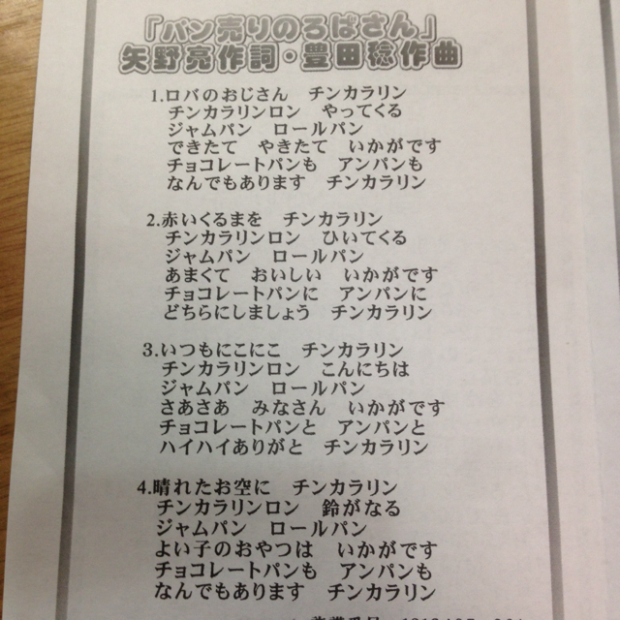 「パン売りのろばさん」
矢野亮作詞・豊田稔作曲
1.ロバのおじさん　チンカラリン
チンカラリンロン　やってくる
ジャムパン　ロールパン
できたて　やきたて　いかがです
チョコレートパンも　アンパンも
なんでもあります　チンカラリン
2.赤いくるまを　チンカラリン
チンカラリンロン　ひいてくる
ジャムパン　ロールパン
あまくて　おいしい　いかがです
チョコレートパンに　アンパンに
どちらにしましょう　チンカラリン
3.いつもにこにこ　チンカラリン
チンカラリンロン　こんにちは
ジャムパン　ロールパン
さあさあ　みなさん　いかがです
チョコレートパンと　アンパンと
ハイハイありがと　チンカラリン
4.晴れたお空に　チンカラリン
チンカラリンロン　鈴がなる
ジャムパン　ロールパン
よい子のおやつは　いかがです
チョコレートパンも　アンパンも
なんでもあります　チンカラリン